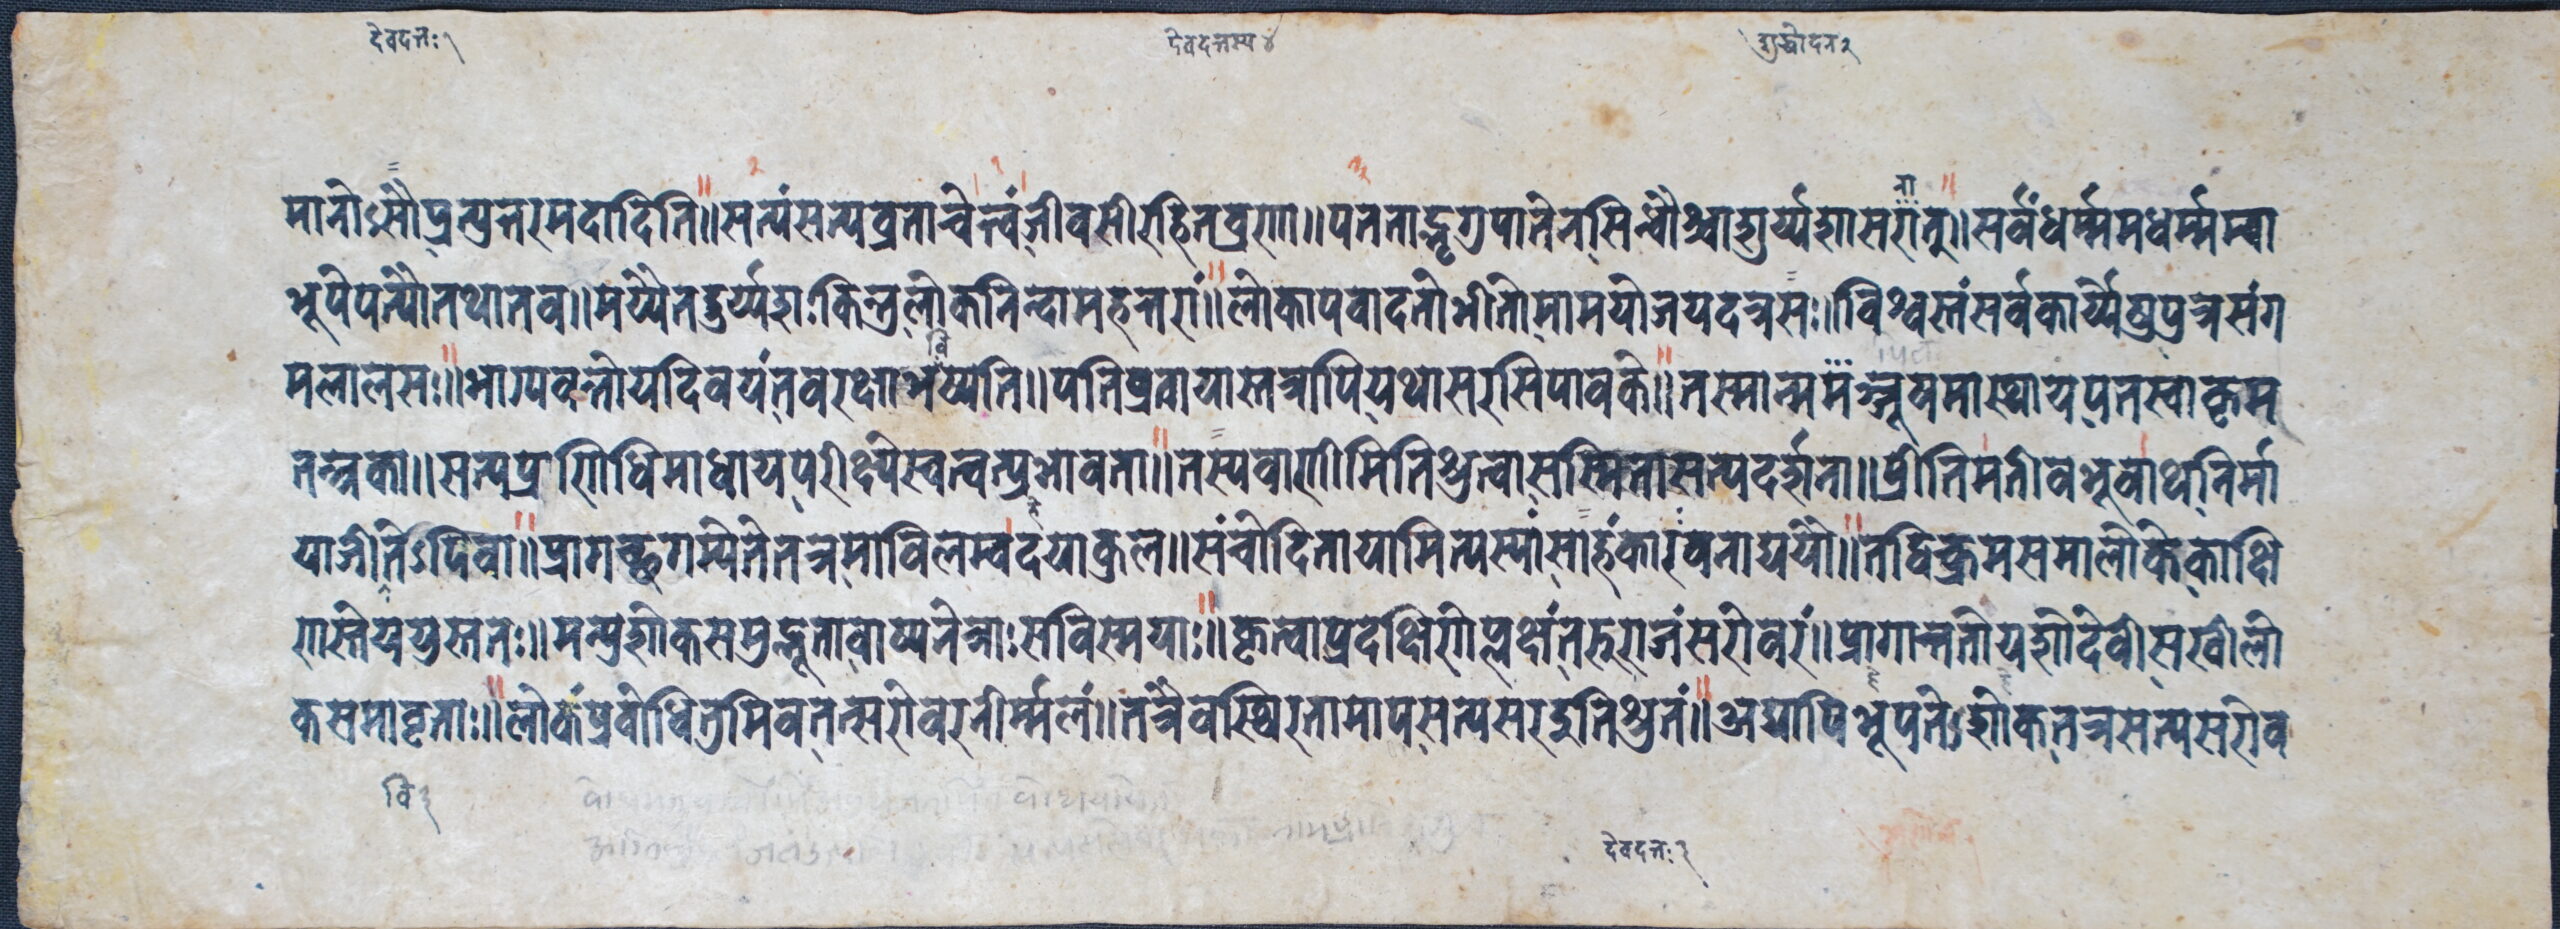 देवदत्तः१ देवदत्तस्य४ शुद्धोदन२
मानोऽसौप्रत्युत्तरमदादिति॥सत्यंसत्यव्रताचेत्त्वंजीवसीरहितव्रणा॥पतनाद्भृगुपातेनसिन्धौश्वाशुर्य्यशासरातु॥सर्वंधर्म्ममधर्म्मम्वा
भूपेपत्यौतथातव॥मय्यैतद्दुर्य्यशःकिन्तुलोकनिन्दामहत्तरां॥लोकापवादतोभीतोमामयोजयदत्रसः॥विश्वस्तंसर्वकार्य्येषुपुत्रसंग
मलालसः॥भाग्यवन्तोयदिवयंतवरक्षाभय्यति॥पतिव्रतायास्तत्रापियथासरसिपावके॥तस्मान्ममञ्जूषमास्थायपतस्वाकृम
तन्त्रका॥सत्यप्राणिधिमाधायपरीक्ष्येस्वत्वत्प्रभावता॥तस्यवाणीमितिश्रुत्वासस्मितासत्यदर्शना॥प्रीतिमतीवभूवाथनिर्मा
याजीतेऽपिवा॥प्रागच्छगम्यतेतत्रमाविलम्वदयाकुल॥संचोदितायामित्यस्यांसाहंकारंवनाद्ययौ॥तद्विक्रमसमालोकेकाक्षि
णस्तेययुस्ततः॥मन्युशोकसमुद्भूतावाष्पनेत्राःसविस्मयाः॥कृत्वाप्रदक्षिणंप्लक्षंतरुराजंसरोवरं॥प्रागात्ततोयशोदेवीसखीलो
कसमावृताः॥लोकंप्रवोधितुमिवतत्सरोवरनीर्म्मलं॥तत्रैवस्थिरतामापसत्यसरइतिश्रुतं॥अद्यापिभूपतेऽशोकतत्रसत्यसरोव
वि३
देवदत्तः२